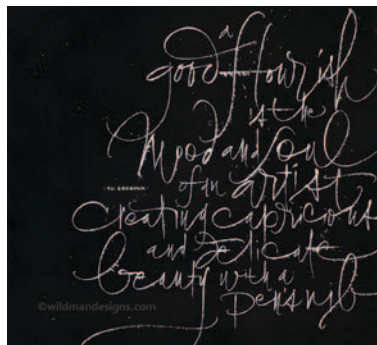 a
good flourish
is the
Mood and Soul
of an artist
Creating Capricious
and delicate
beauty with a
pens nib
©wildmandesigns.com